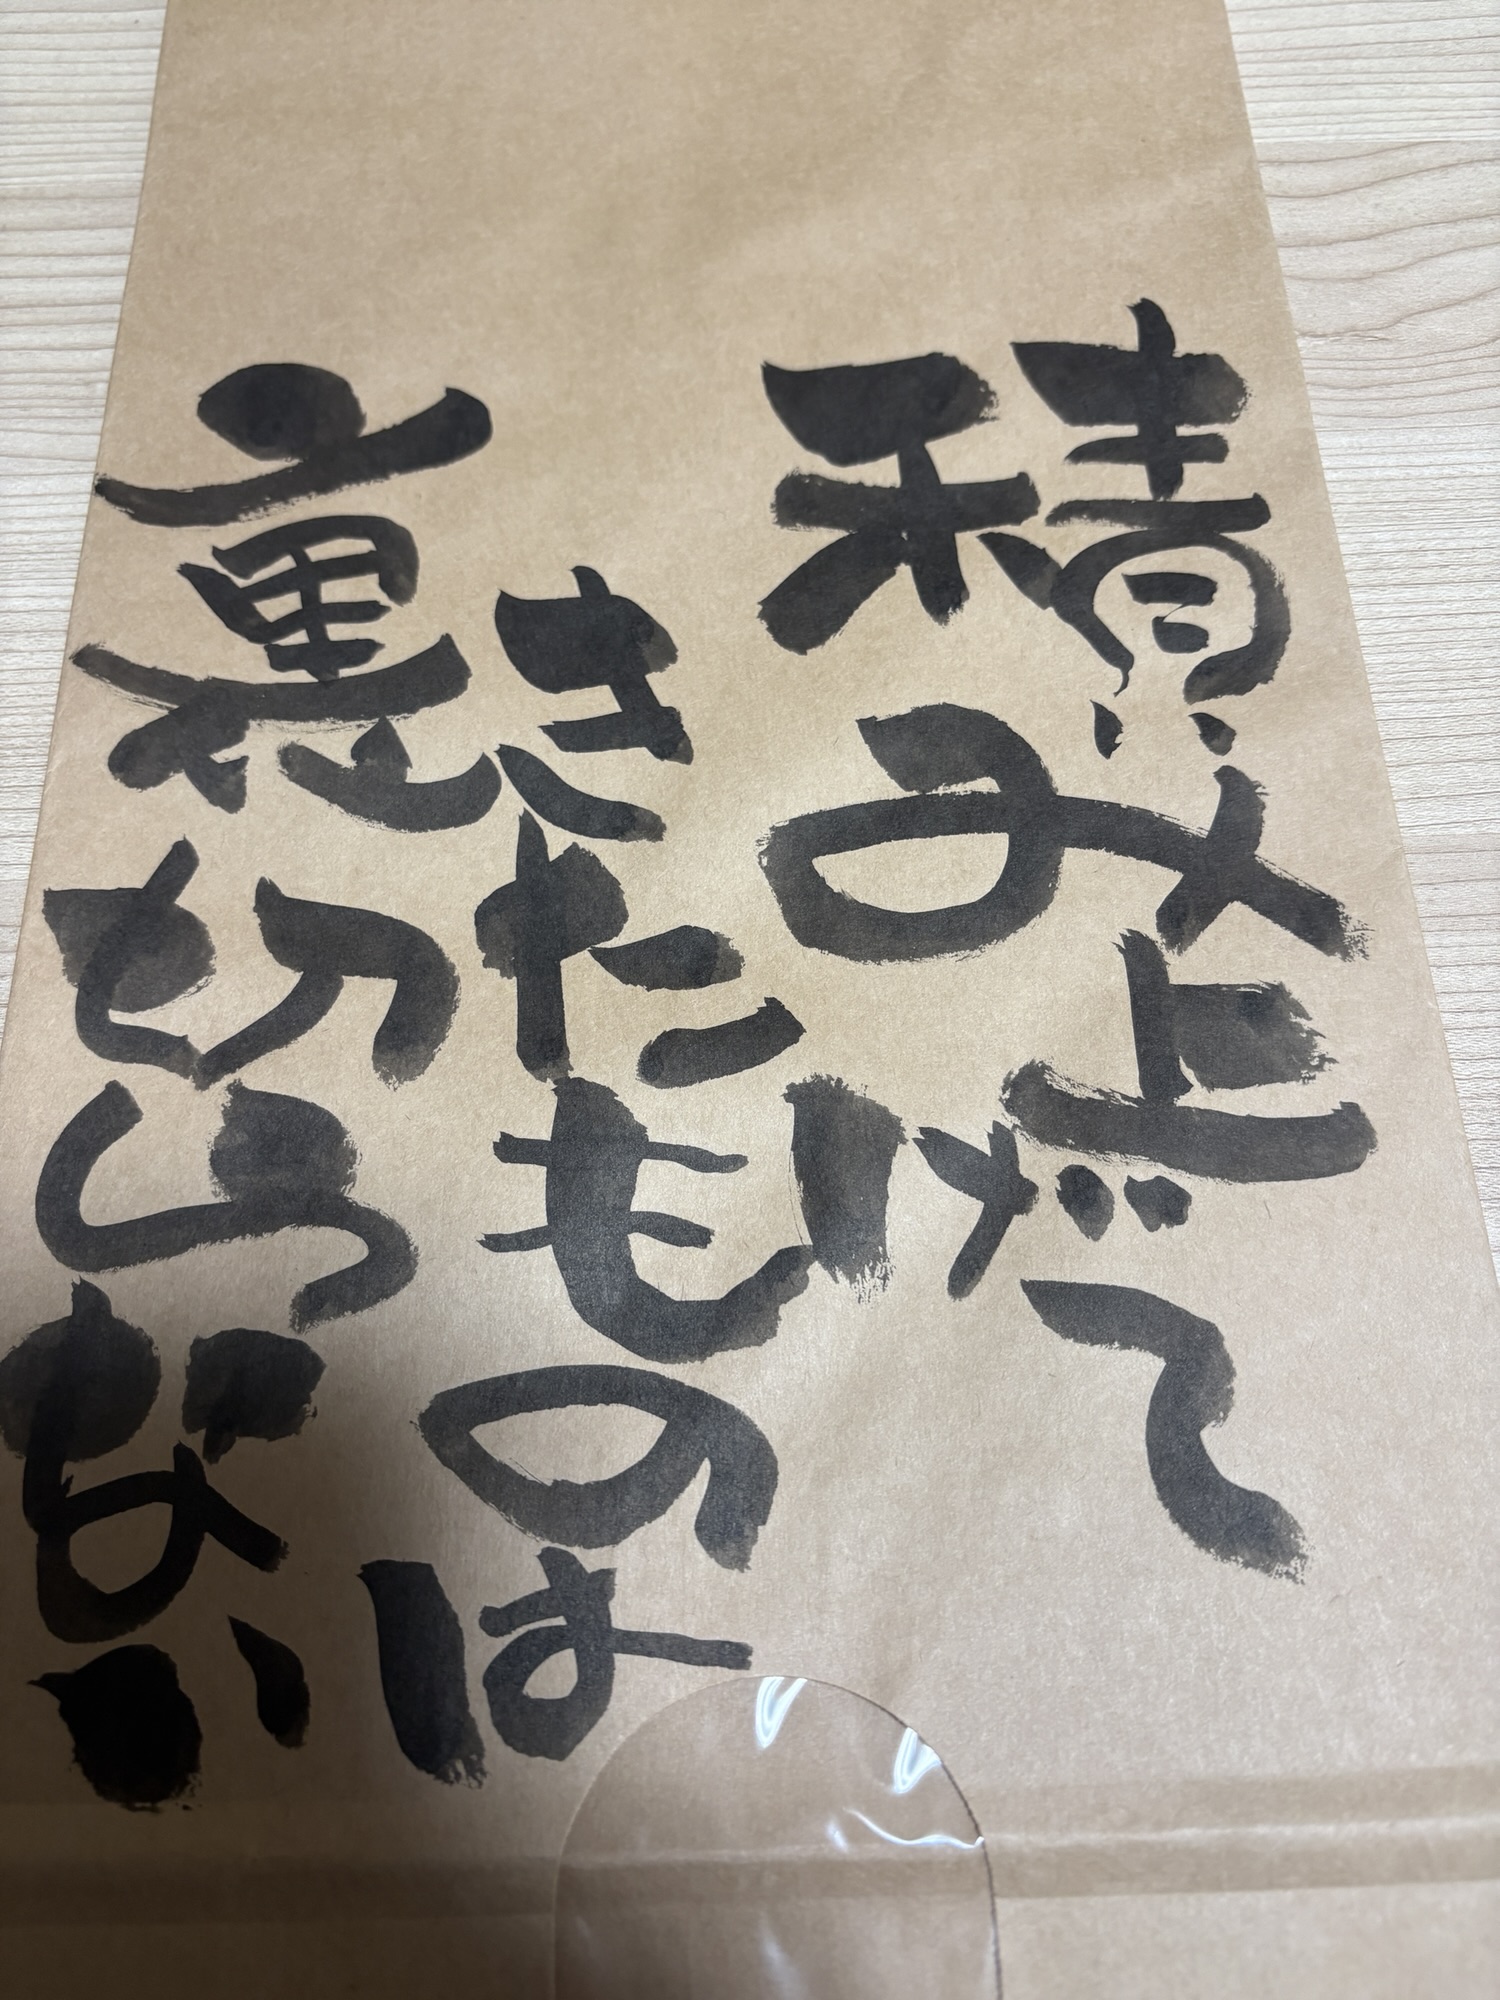 積み上げて
きたものは
裏切らない